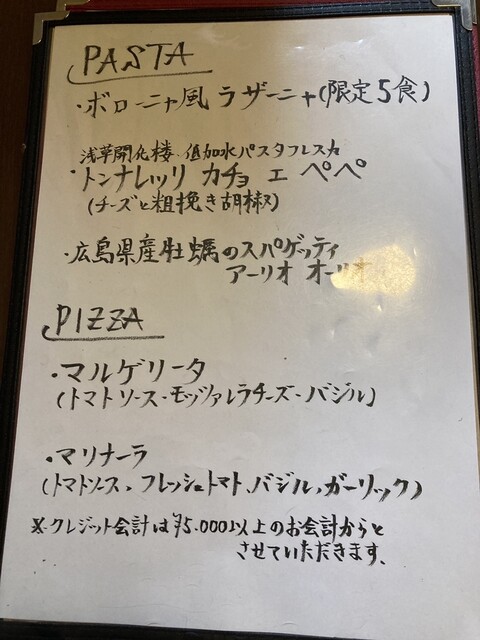 PASTA
・ボローニャ風 ラザーニャ(限定5食)
浅草開化楼・低加水パスタフレスカ
・トンナレッリ カチョ エ ペペ
(チーズと粗挽き胡椒)
・広島県産牡蠣のスパゲッティ
アーリオ オーリオ
PIZZA
・マルゲリータ
(トマトソース・モッツァレラチーズ・バジル)
・マリナーラ
(トマトソース、フレッシュトマト、バジル、ガーリック)
※クレジット会計は¥5.000以上のお会計からと
させていただきます。